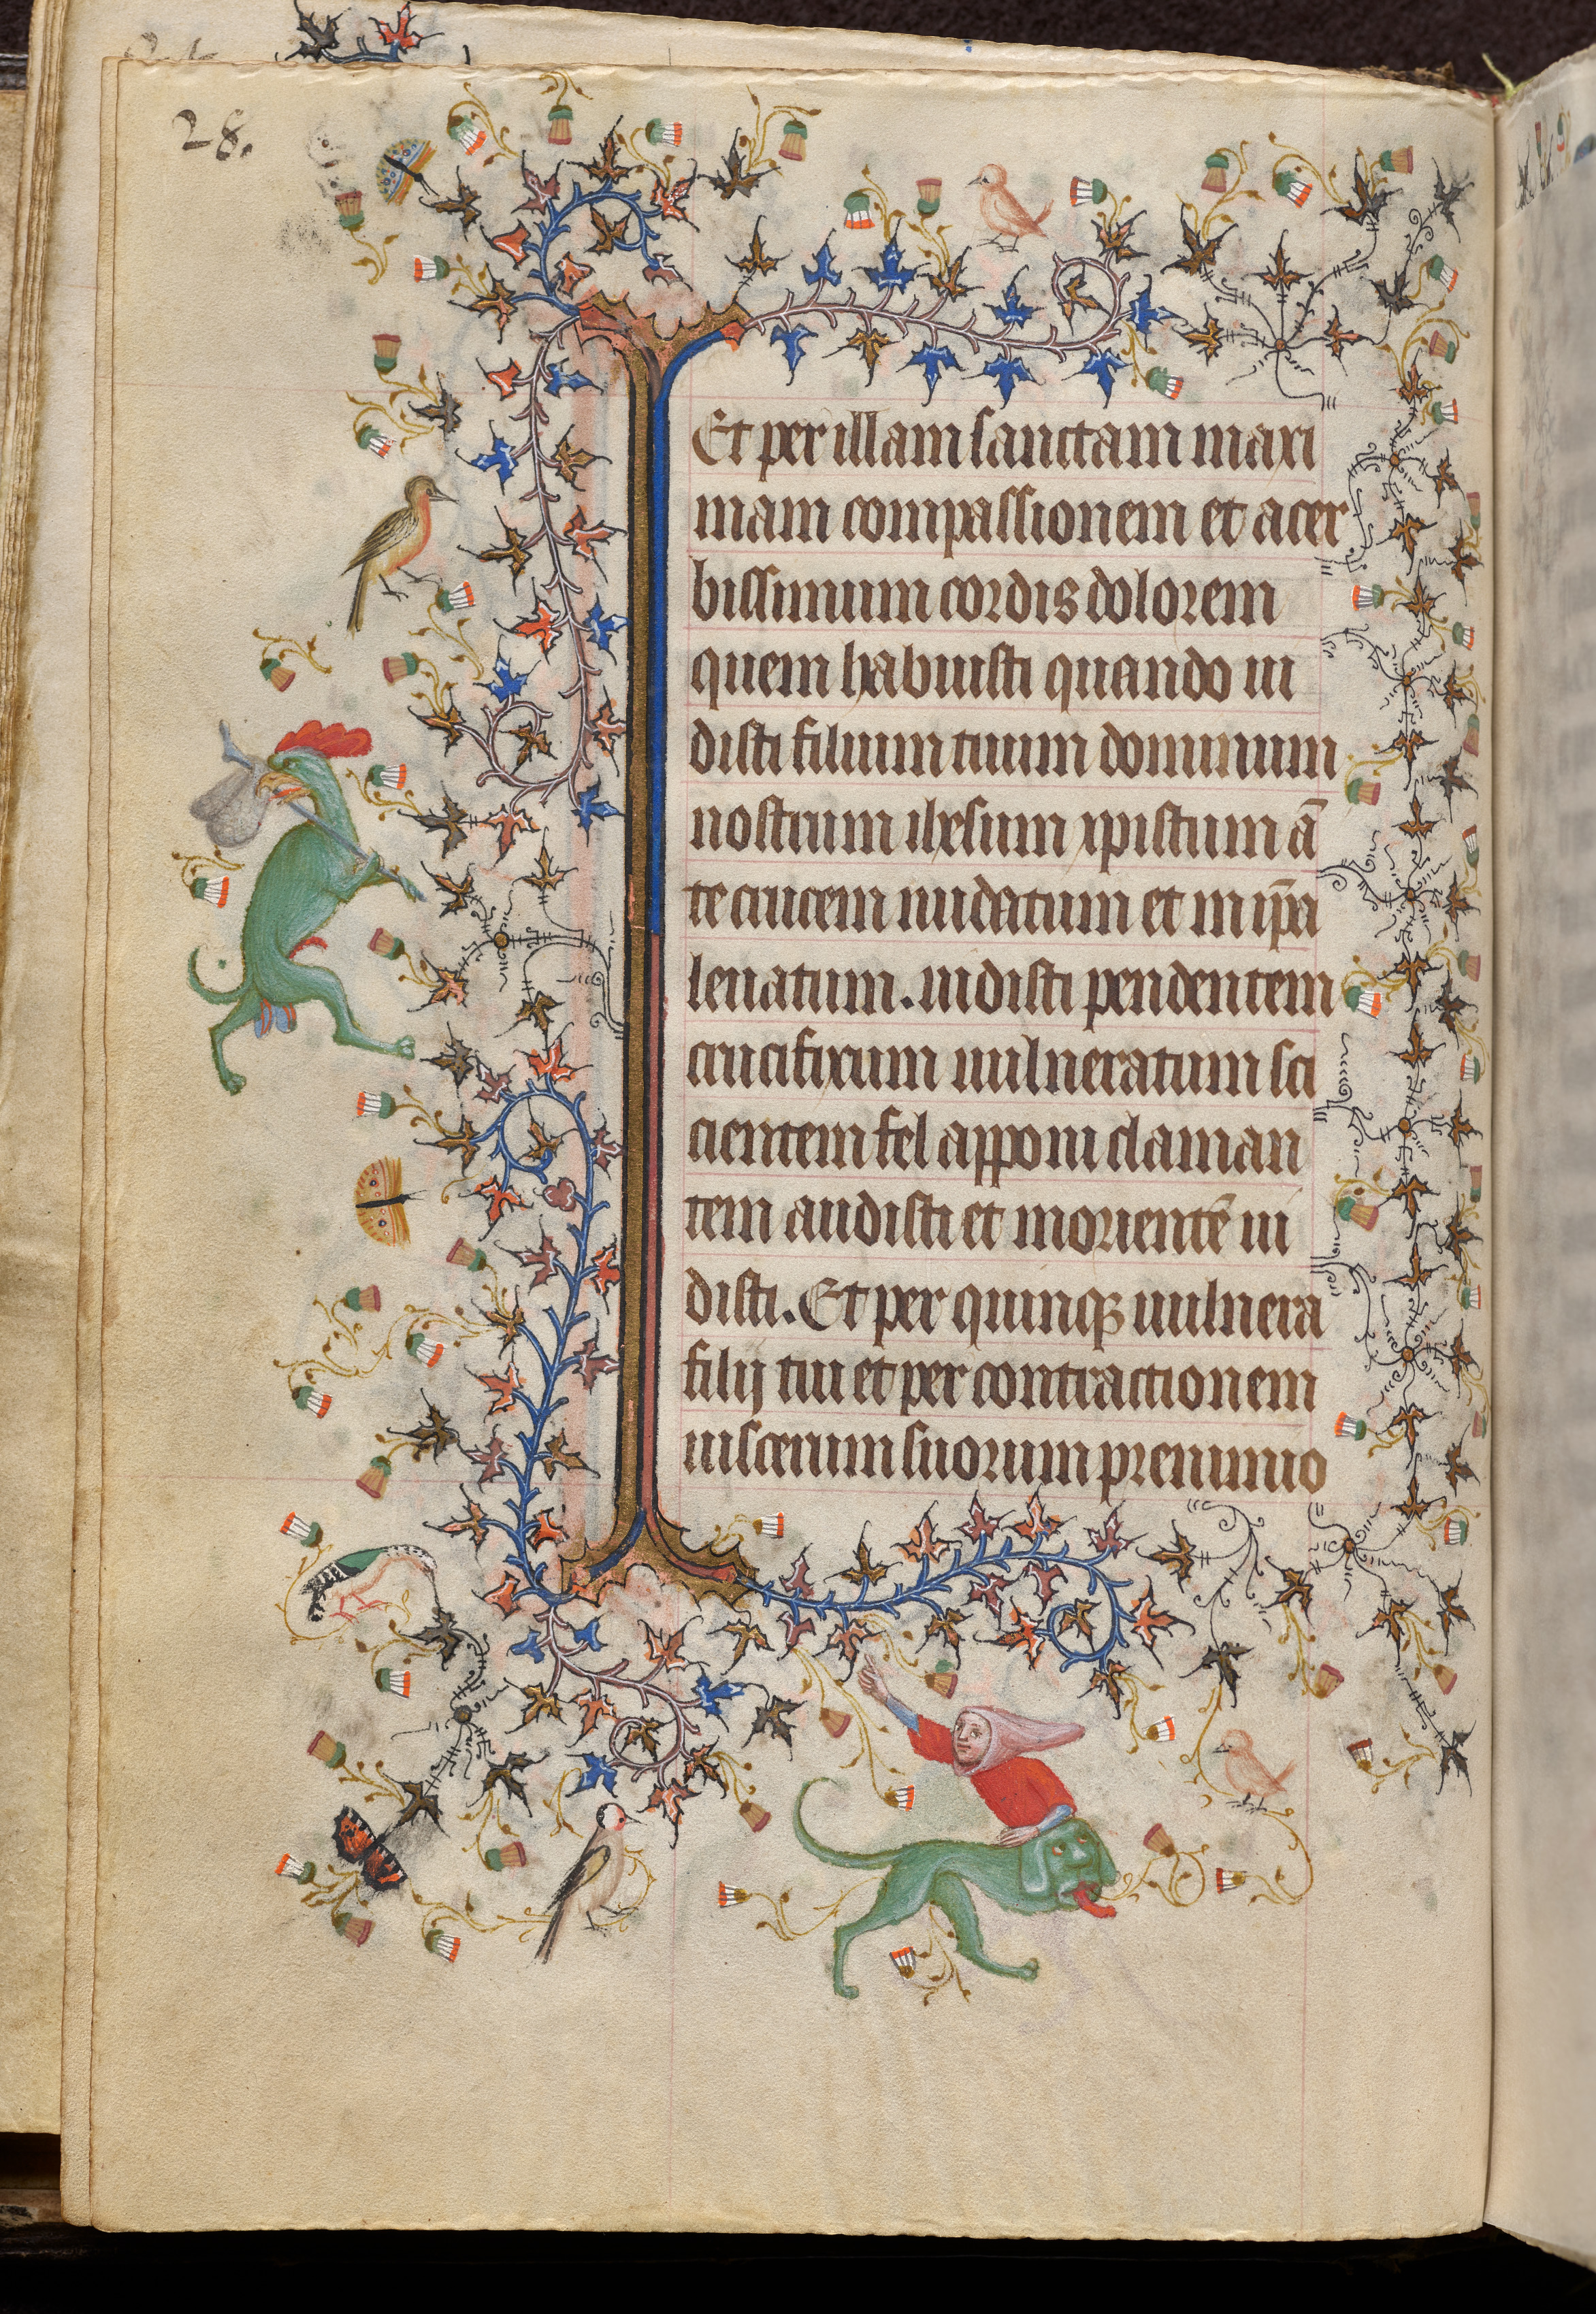 28.
Et per illam sanctam maxi
mam compassionem et acer
bissimum cordis dolorem
quem habuisti quando ui
disti filium tuum dominum
nostrum ihesum xpistum ā
te crucem nudatum et in ip̄a
leuatum. uidisti pendentem
crucifixum uulneratum sci
cientem fel apponi claman
tem audisti et morientē ui
disti. Et per quinqꝫ uulnera
filij tui et per contractionem
uiscerum suorum pre nimio